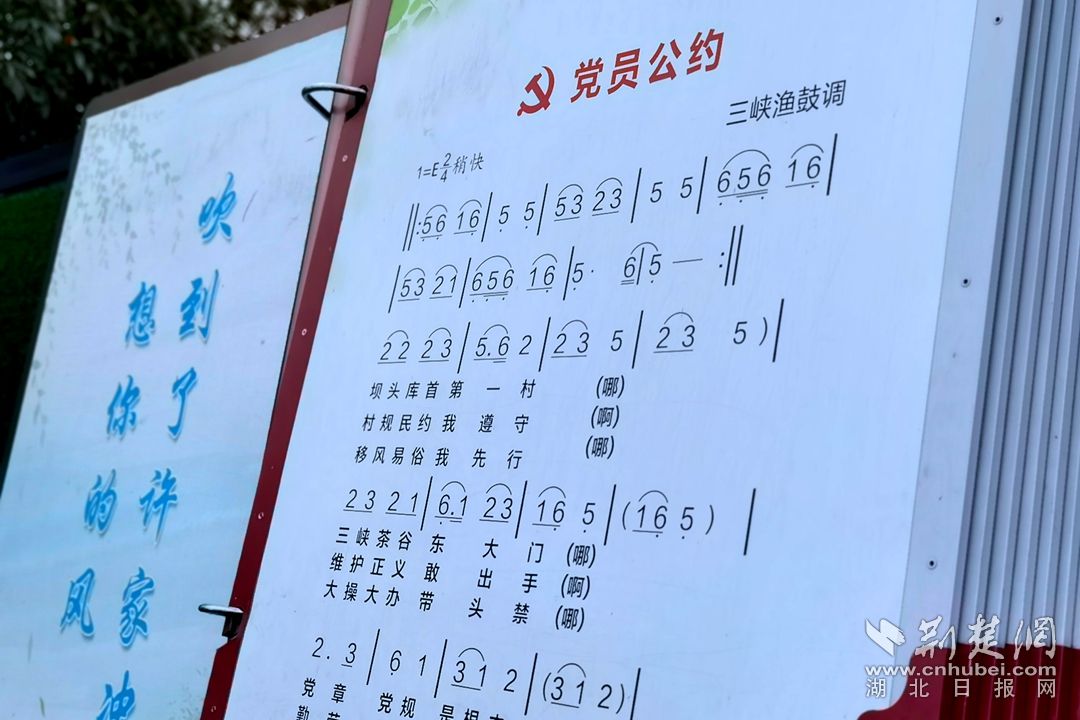 吹到了许家神
想你的风
党员公约
三峡渔鼓调
1=E 2/4 稍快
‖: 56 16 | 5 5 | 53 23 | 5 5 | 656 16 |
| 53 21 | 656 16 | 5· 6 | 5 — :‖
22 23 | 5.6 2 | 23 5 | 23 5 ) |
坝头库首第一村 (哪)
村规民约我遵守 (啊)
移风易俗我先行 (哪)
23 21 | 6.1 23 | 16 5 | ( 16 5 ) |
三峡茶谷东大门 (哪)
维护正义敢出手 (啊)
大操大办带头禁 (哪)
2. 3 | 6 1 | 31 2 | ( 31 2 ) |
党章党规是根
勤
荆楚网
www.cnhubei.com
湖北日报网